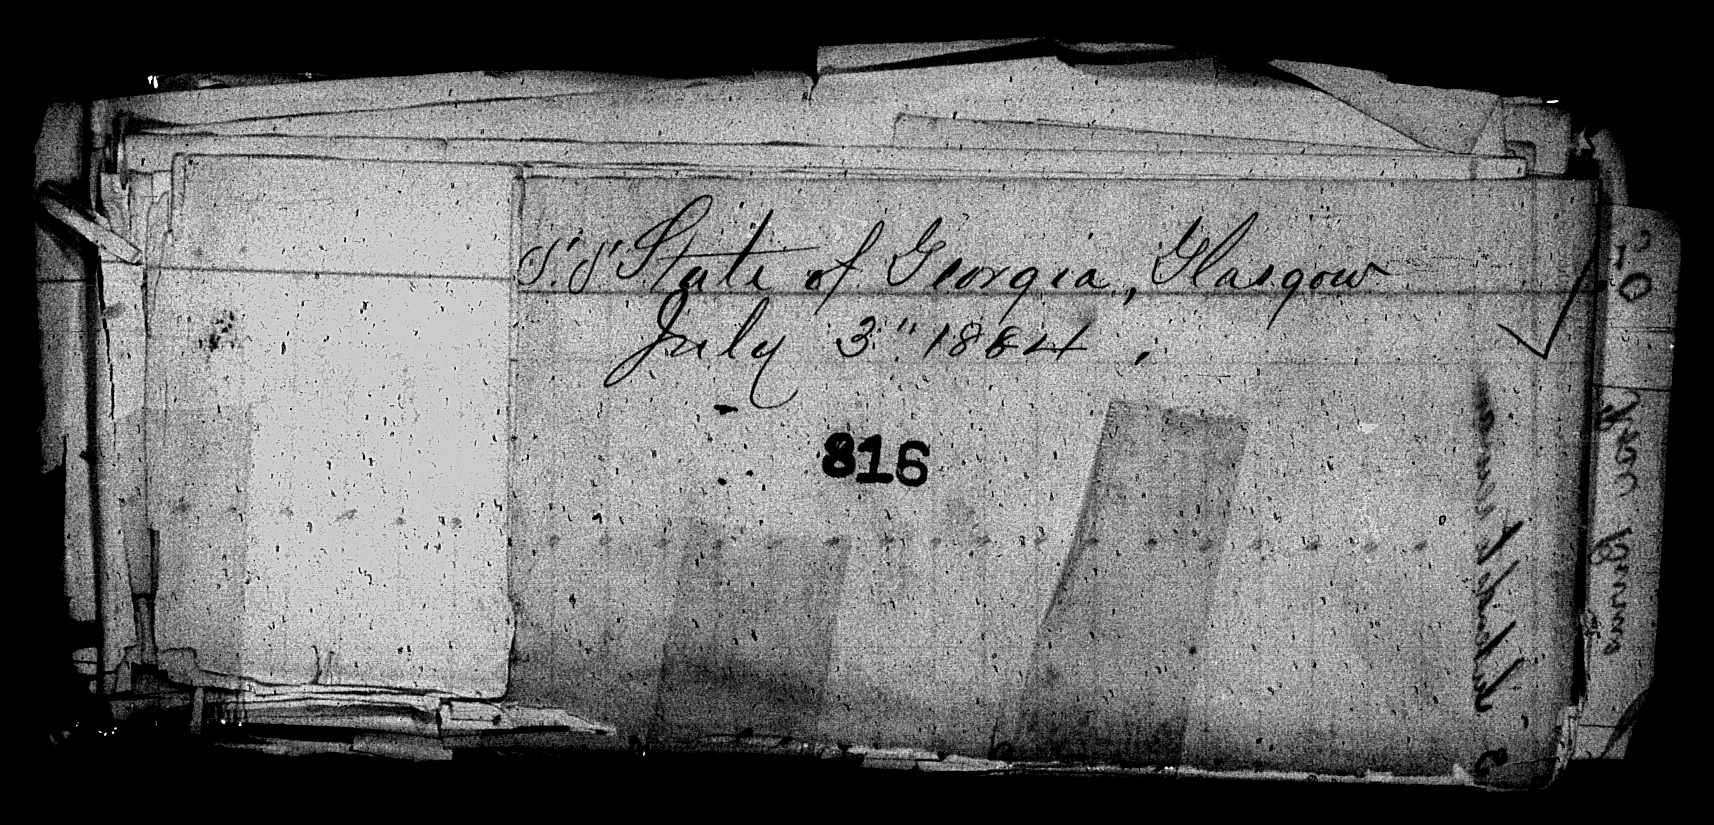 S.S. State of Georgia, Glasgow
July 3" 1884.
816